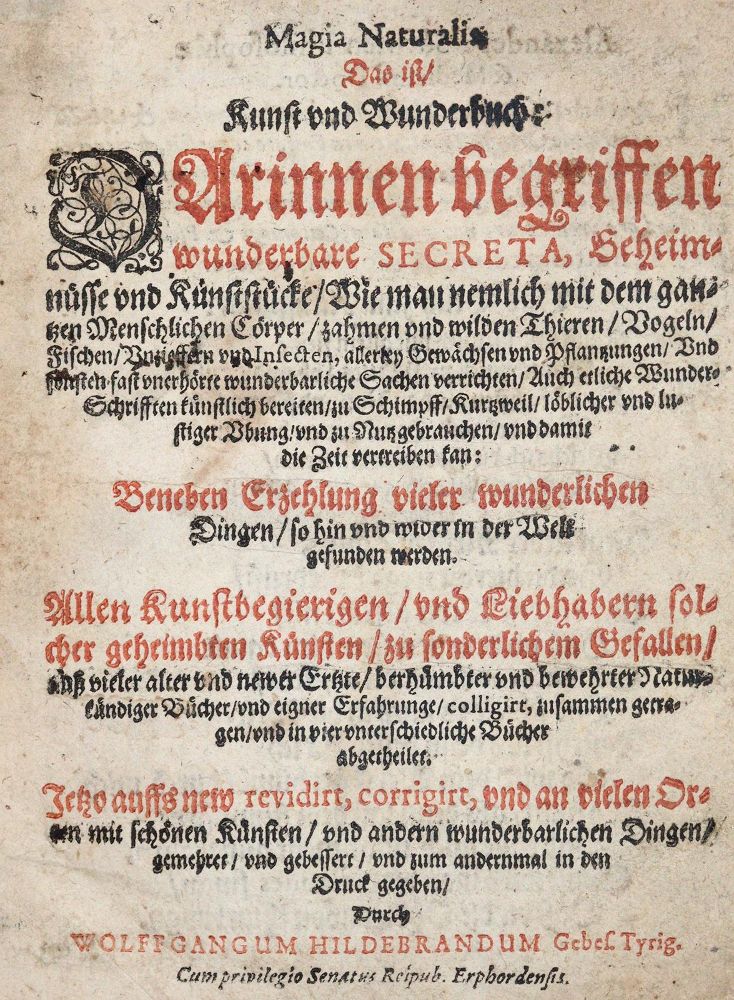 Magia Naturalis
Das ist/
Kunst vnd Wunderbuch:
DArinnen begriffen
wunderbare SECRETA, Geheim-
nüsse vnd Künststücke/Wie man nemlich mit dem gan-
tzen Menschlichen Cörper/zahmen vnd wilden Thieren/Vogeln/
Fischen/Vnzieffern vnd Insecten, allerley Gewächsen vnd Pflantzungen/Vnd
sonsten fast vnerhörte wunderbarliche Sachen verrichten/Auch etliche Wunder-
Schrifften künstlich bereiten/zu Schimpff/Kurtzweil/löblicher vnd lu-
stiger Vbung/vnd zu Nutz gebrauchen/vnd damit
die Zeit vertreiben kan:
Beneben Erzehlung vieler wunderlichen
Dingen/so hin vnd wider in der Welt
gefunden werden.
Allen Kunstbegierigen/vnd Liebhabern sol-
cher geheimbten Künsten/zu sonderlichem Gefallen/
auß vieler alter vnd newer Ertzte/berhümbter vnd bewehrter Natur-
kündiger Bücher/vnd eigner Erfahrunge/colligirt, zusammen getra-
gen/vnd in vier vnterschiedliche Bücher
abgetheilet.
Jetzo auffs new revidirt, corrigirt, vnd an vielen Or-
ten mit schönen Künsten/vnd andern wunderbarlichen Dingen/
gemehret/vnd gebessert/vnd zum andernmal in den
Druck gegeben/
Durch
WOLFFGANGUM HILDEBRANDUM Gebes. Tyrig.
Cum privilegio Senatus Reipub. Erphordensis.